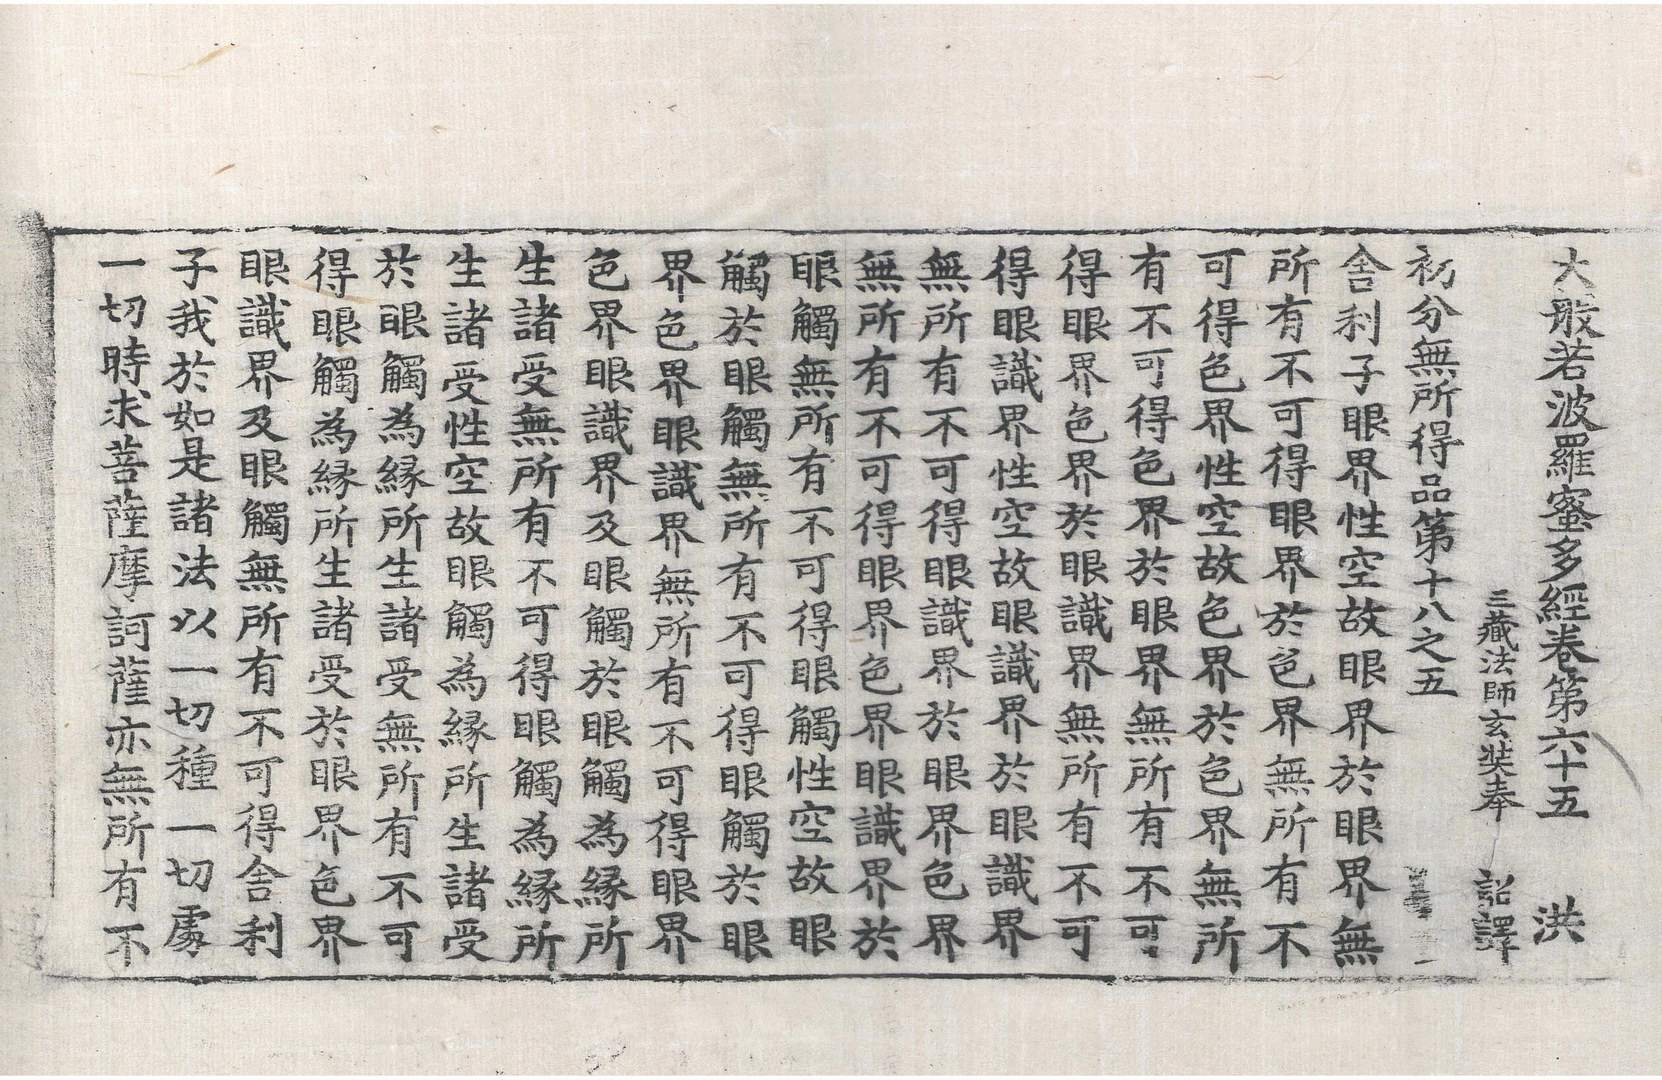 大般若波羅蜜多經卷第六十五 洪
三藏法師玄奘奉 詔譯
初分無所得品第十八之五
舍利子眼界性空故眼界於眼界無
所有不可得眼界於色界無所有不
可得色界性空故色界於色界無所
有不可得色界於眼界無所有不可
得眼界色界於眼識界無所有不可
得眼識界性空故眼識界於眼識界
無所有不可得眼識界於眼界色界
無所有不可得眼界色界眼識界於
眼觸無所有不可得眼觸性空故眼
觸於眼觸無所有不可得眼觸於眼
界色界眼識界無所有不可得眼界
色界眼識界及眼觸於眼觸為緣所
生諸受無所有不可得眼觸為緣所
生諸受性空故眼觸為緣所生諸受
於眼觸為緣所生諸受無所有不可
得眼觸為緣所生諸受於眼界色界
眼識界及眼觸無所有不可得舍利
子我於如是諸法以一切種一切處
一切時求菩薩摩訶薩亦無所有不